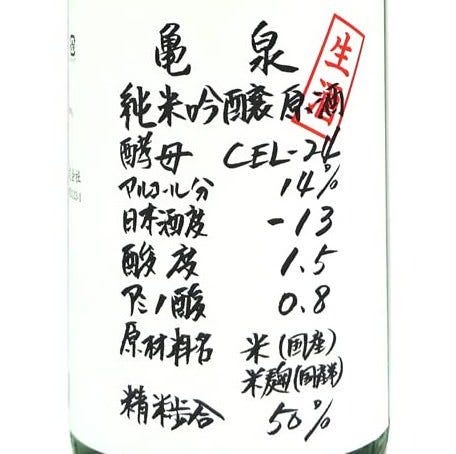 亀泉
生酒
純米吟醸原酒
酵母 CEL-24
アルコール分 14%
日本酒度 -13
酸度 1.5
アミノ酸 0.8
原材料名 米(国産)
米麹(国産米)
精米歩合 50%